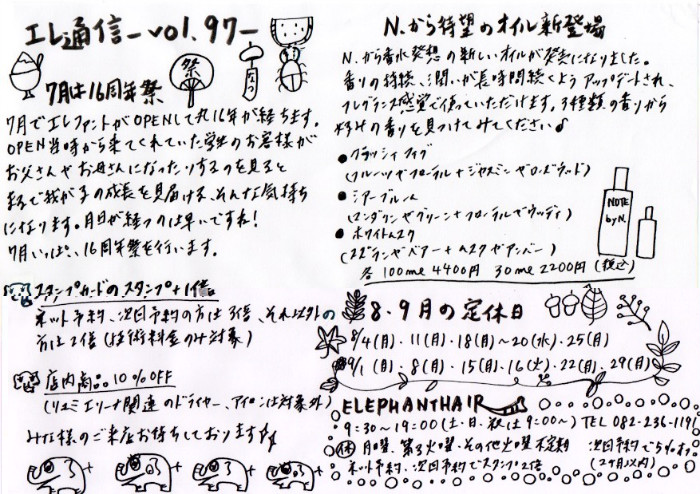 エレ通信 -vol.97-
7月は16周年祭
祭
7月でエレファントがOPENして丸16年が経ちます。
OPEN当時から来てくれていた学生のお客様が
お父さんやお母さんになったりするのを見ると
まるで我が子の成長を見届ける、そんな気持ち
になります。月日が経つのは早いですね!
7月いっぱい、16周年祭を行います。
スタンプカードのスタンプ+1個
ネット予約、次回予約の方は3倍、それ以外の
方は2倍(技術料金のみ対象)
店内商品10%OFF
(リュミエリーナ関連のドライヤー、アイロンは対象外)
みな様のご来店お待ちしております
N.から待望のオイル新登場
N.から香水発想の新しいオイルが発売になりました。
香りの持続、潤いが長時間続くようアップデートされ、
フレグランス感覚で使っていただけます。3種類の香りから
好みの香りを見つけてみてください♪
●クラッシィフィグ
(フルーツ×フローラル+ジャスミン×ローズウッド)
●シアーブルーム
(マンダリン×グリーン+フローラル×ウッディ)
●ホワイトムスク
(スズラン×ペアー+ムスク×アンバー)
各100ml 4400円 30ml 2200円(税込)
NOTE
by N.
8、9月の定休日
8/4(月)・11(月)・18(月)~20(水)・25(月)
9/1(月)・8(月)・15(月)・16(火)・22(月)・29(月)
ELEPHANT HAIR
9:30~19:00(土・日・祝は9:00~) TEL 082-236-1191
休 月曜、第3火曜・その他火曜不定期 次回予約で5%オフ
ネット予約、次回予約でスタンプ2倍 (2ヶ月以内)